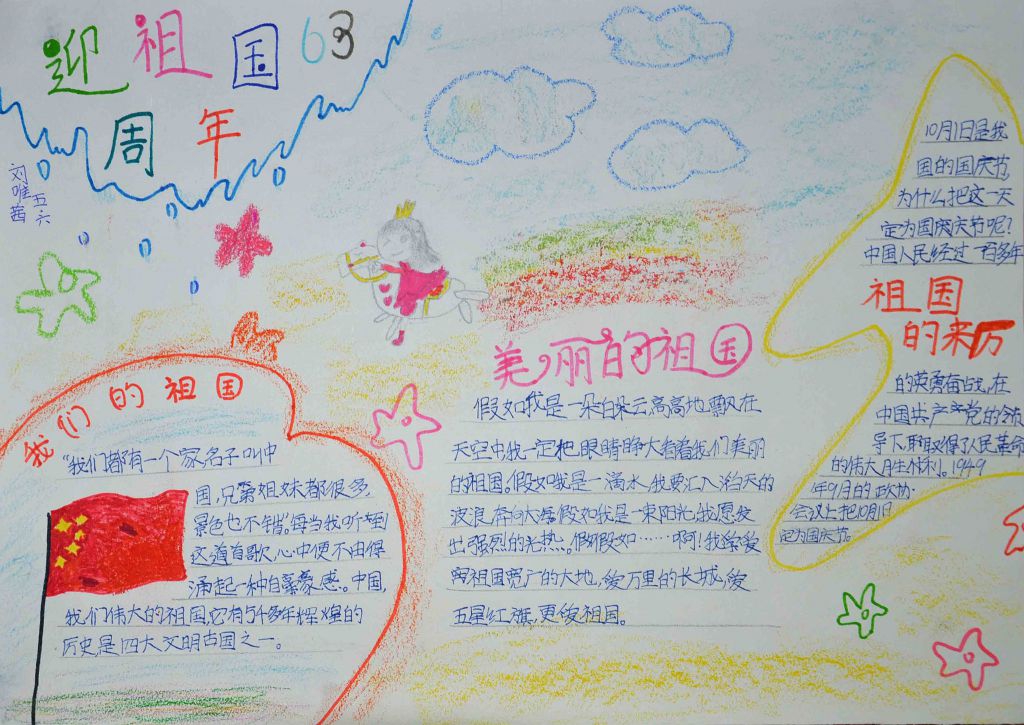 迎祖国63
周年
刘唯茜
五六
我们的祖国
"我们都有一个家,名子叫中
国,兄弟姐妹都很多,
景色也不错"。每当我听到
这首歌,心中便不由得
涌起一种自豪感。中国,
我们伟大的祖国,它有5千多年辉煌的
历史,是四大文明古国之一。
美丽的祖国
假如我是一朵白云,高高地飘在
天空中,我一定把眼睛睁大看着我们美丽
的祖国。假如我是一滴水,我要汇入滔天的
波浪,奔向大海。假如我是一束阳光,我愿发
出强烈的光热。假如……啊!我深爱
祖国宽广的大地,爱万里的长城,爱
五星红旗,更爱祖国。
10月1日是我
国的国庆节
为什么把这一天
定为国庆节呢?
中国人民经过一百多年
祖国
的来历
的英勇奋战,在
中国共产党的领
导下,取得了人民革命
的伟大胜利。1949
年9月的政协
会议上把10月1日
定为国庆节。